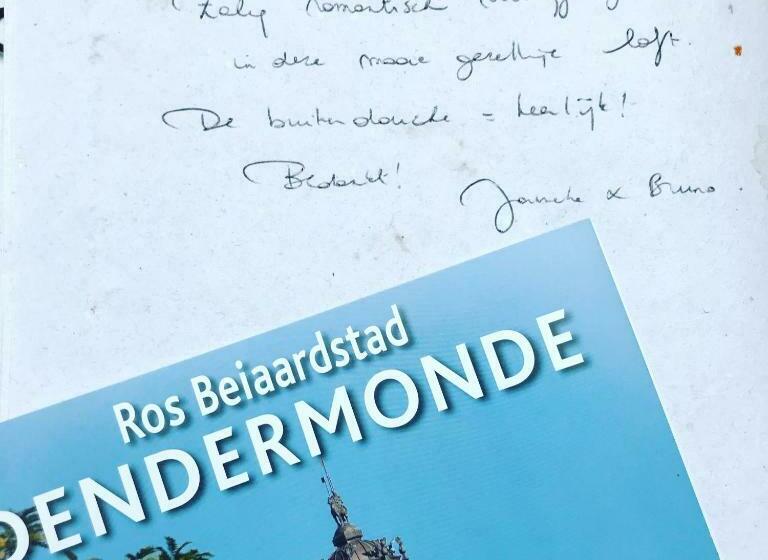 Zalig romantisch
in deze mooie gezellige loft.
De buitendouche = heerlijk!
Bedankt!
Janneke & Bruno.
Ros Beiaardstad
DENDERMONDE